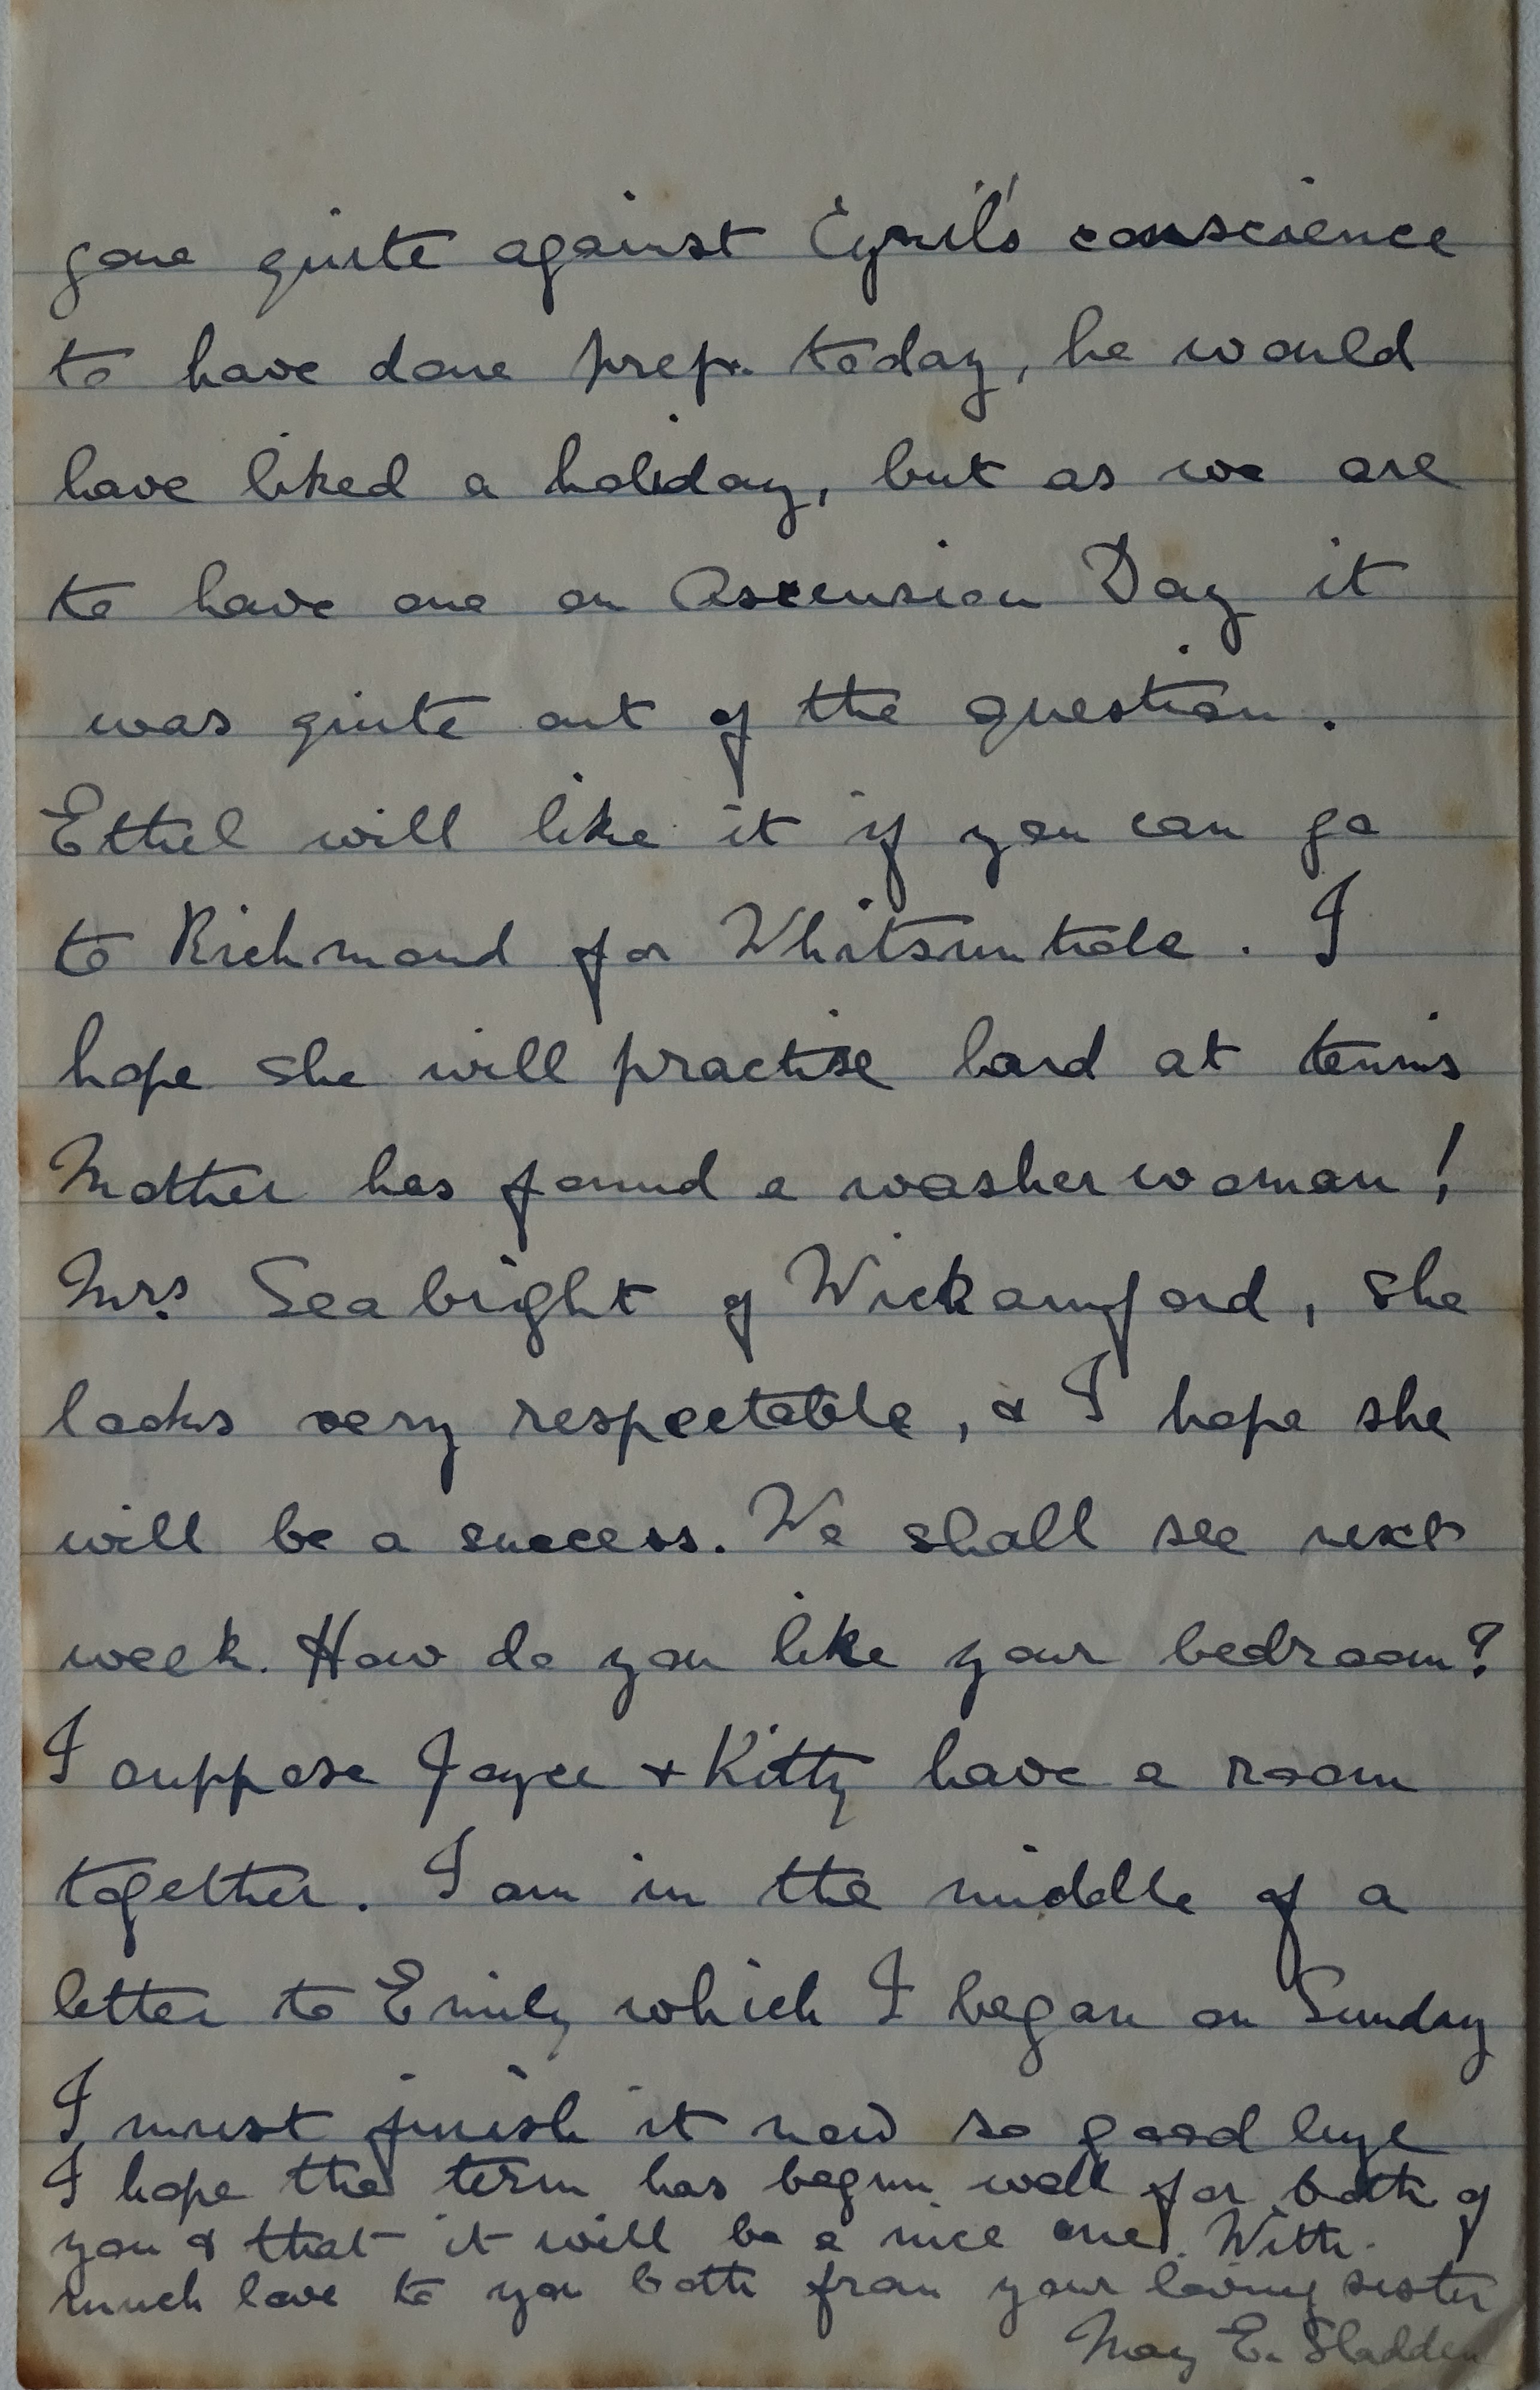 gone quite against Cyril's conscience
to have done prep. today, he would
have liked a holiday, but as we are
to have one on Ascension Day it
was quite out of the question.
Ethel will like it if you can go
to Richmond for Whitsuntide. I
hope she will practise hard at tennis
Mother has found a washerwoman!
Mrs. Seabright of Wickamford, she
looks very respectable, & I hope she
will be a success. We shall see next
week. How do you like your bedroom?
I suppose Joyce & Kitty have a room
together. I am in the middle of a
letter to Emily which I began on Sunday
I must finish it now so good bye
I hope the term has begun well for both of
you & that it will be a nice one. With
much love to you both from your loving sister
May E. Sladden